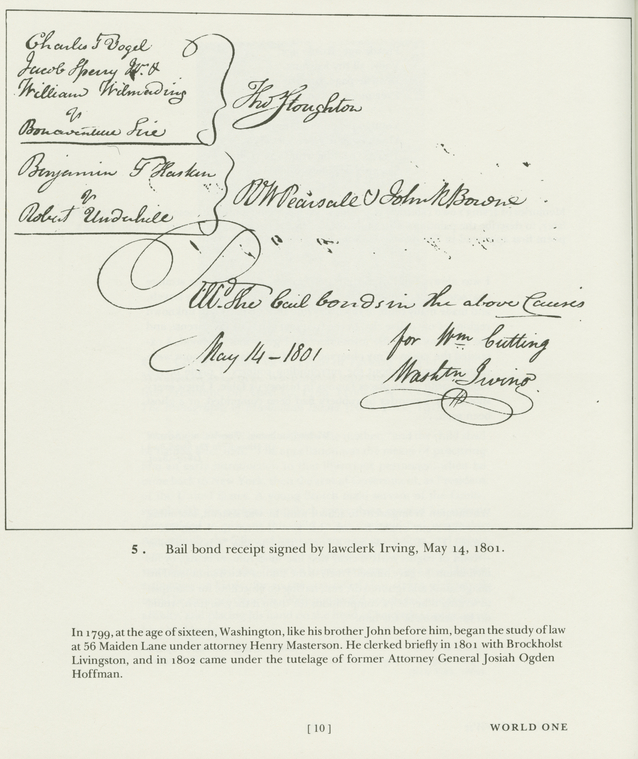 Charles F Vogel
Jacob Sperry &
William Wilmerding
v
Bonaventure
Thos Stoughton
Benjamin F Haskin
v
Robert Underhill
W Pearsall & John N Bowne
Recd. the bail bonds in the above Causes
for Wm Cutting
May 14 – 1801
Washtn Irving
5 . Bail bond receipt signed by lawclerk Irving, May 14, 1801.
In 1799, at the age of sixteen, Washington, like his brother John before him, began the study of law
at 56 Maiden Lane under attorney Henry Masterson. He clerked briefly in 1801 with Brockholst
Livingston, and in 1802 came under the tutelage of former Attorney General Josiah Ogden
Hoffman.
[ 10 ]
WORLD ONE